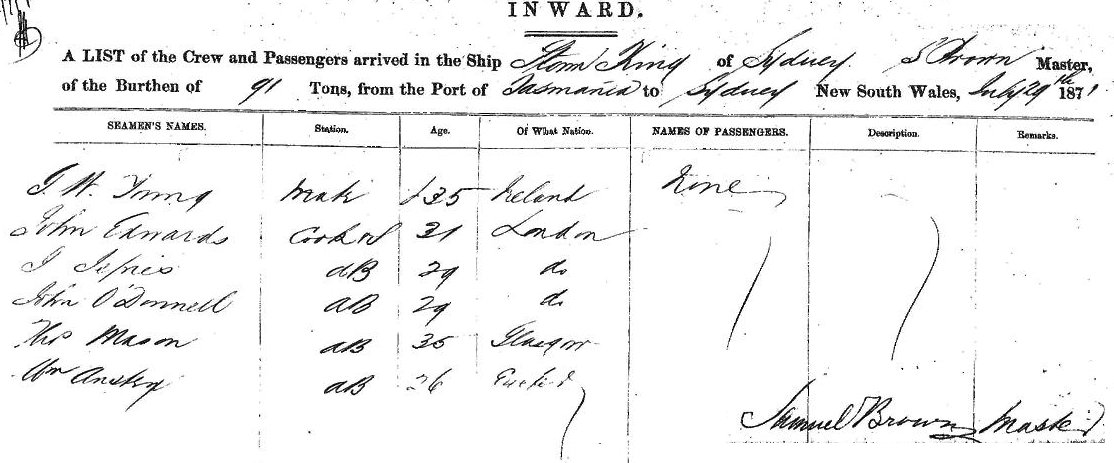 INWARD.
A LIST of the Crew and Passengers arrived in the Ship Storm King of Sydney S Brown Master,
of the Burthen of 91 Tons, from the Port of Tasmania to Sydney New South Wales, July 29th 1871.
SEAMEN'S NAMES. Station. Age. Of What Nation. NAMES OF PASSENGERS. Description. Remarks.
J. W. Young Mate 35 Ireland None
John Edwards Cook 21 London
J aB 29 do
John O'Donnell aB 29 do
Thos Mason aB 35 Glasgow
Wm Anstey aB 26
Samuel Brown Master